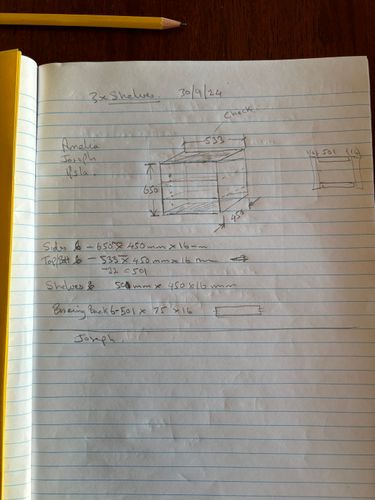 3x Shelves 30/9/24
Check
533
Amelia
Joseph
Isla.
501
650
450
Sides 6 - 650 x 450 mm x 16mm
Top/Btt 6 - 533 x 450 mm x 16 mm
-32 = 501
Shelves 6 501 mm x 450 x 16 mm
Back 6-501 x 75 x 16
Joseph.